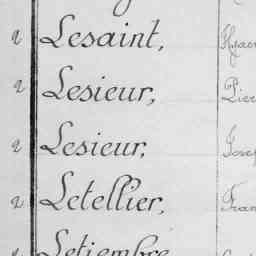 2 Lesaint,
2 Lesieur, Pier
2 Lesieur, Jose
2 Letellier, Fran
Letiembre